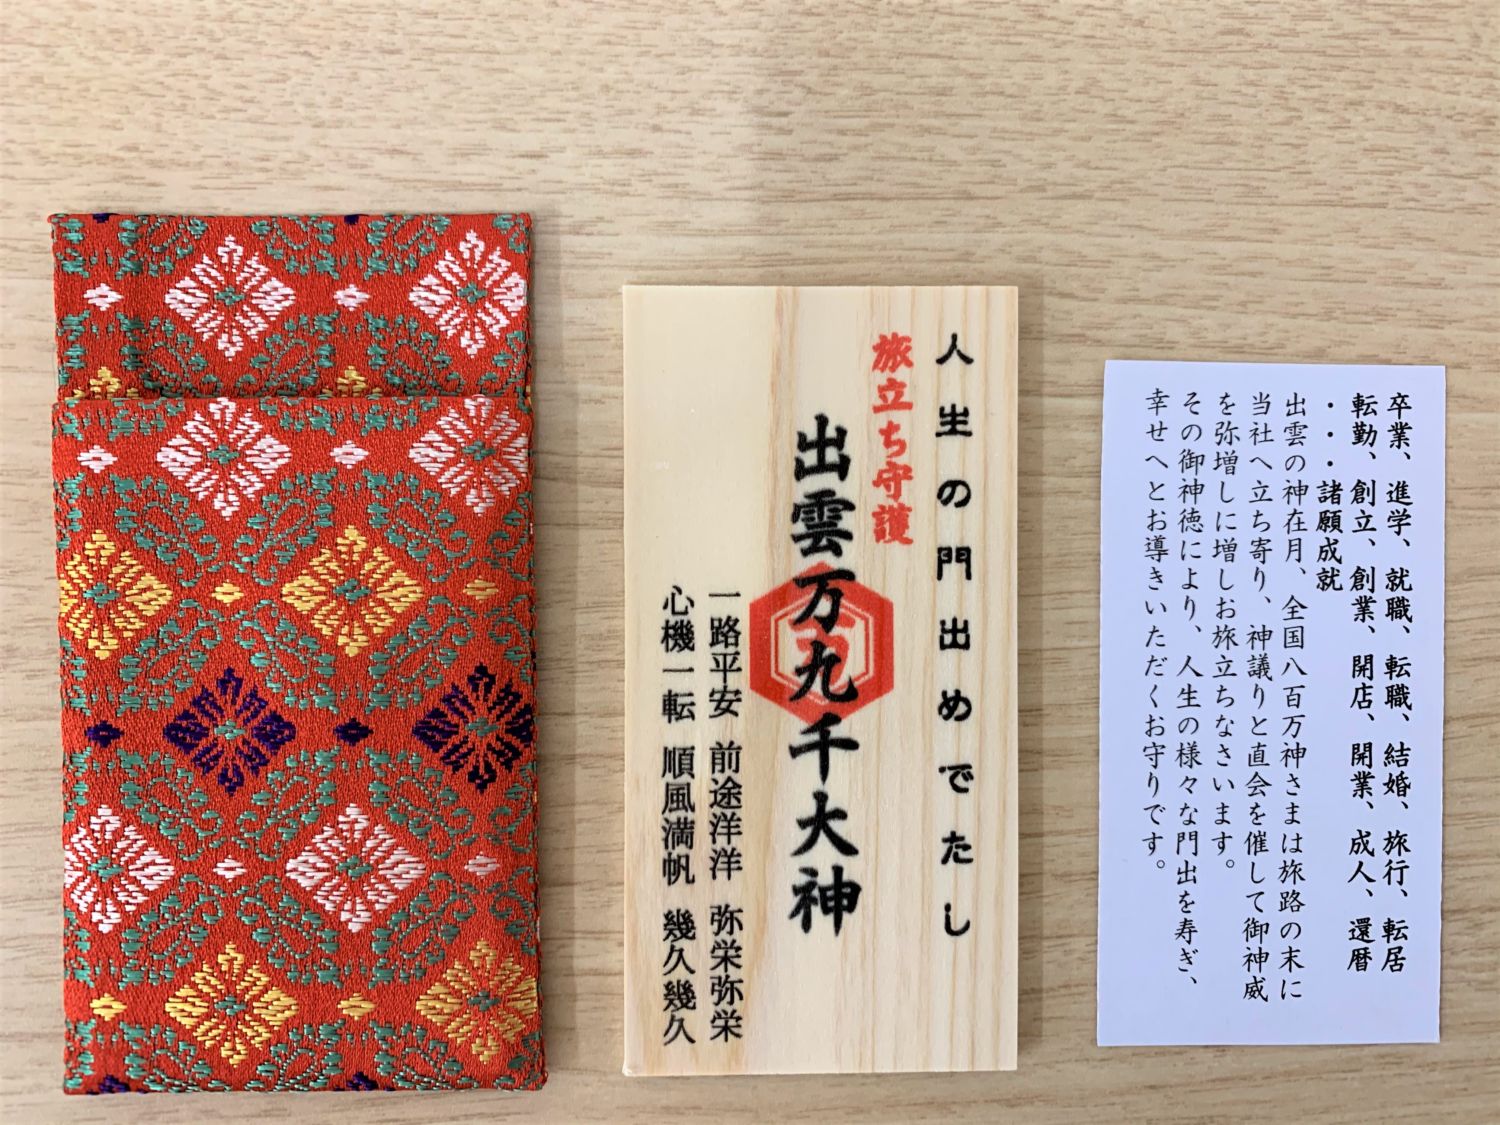 人生の門出めでたし
旅立ち守護
出雲万九千大神
一路平安 前途洋洋 弥栄弥栄
心機一転 順風満帆 幾久幾久
卒業、進学、就職、転職、結婚、旅行、転居
転勤、創立、創業、開店、開業、成人、還暦
・・・諸願成就
出雲の神在月、全国八百万神さまは旅路の末に
当社へ立ち寄り、神議りと直会を催して御神威
を弥増しに増しお旅立ちなさいます。
その御神徳により、人生の様々な門出を寿ぎ、
幸せへとお導きいただくお守りです。